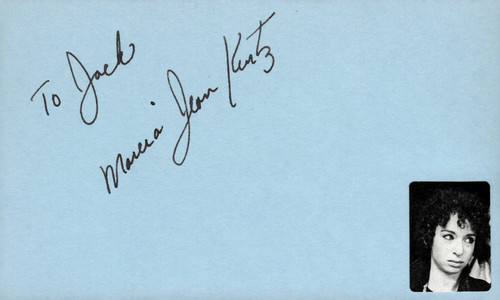 To Jack
Marcia Jean Kurtz